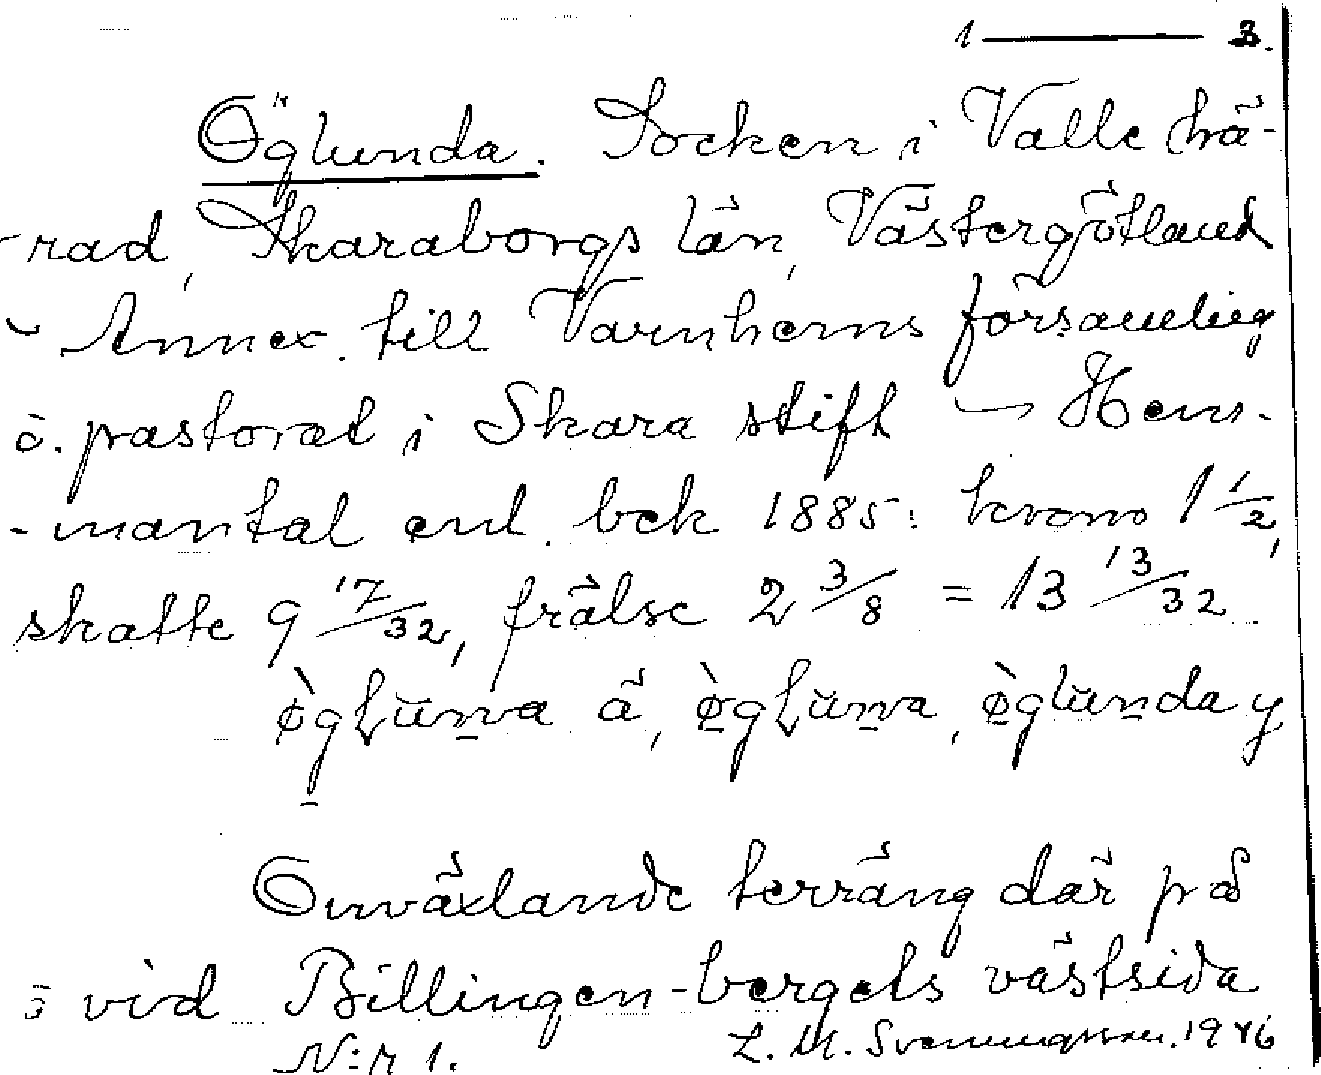 1 — 3.
Öglunda. Socken i Valle hä-
-rad, Skaraborgs län, Västergötland
- Annex till Varnhems församling
o. pastorat i Skara stift - Hem-
-mantal enl. bek 1885: krono 1 1/2,
skatte 9 17/32, frälse 2 3/8 = 13 13/32
ä, y
Omväxlande terräng där på
o vid Billingen-bergets västsida
N:r 1. L. M. Svenungsson. 1946